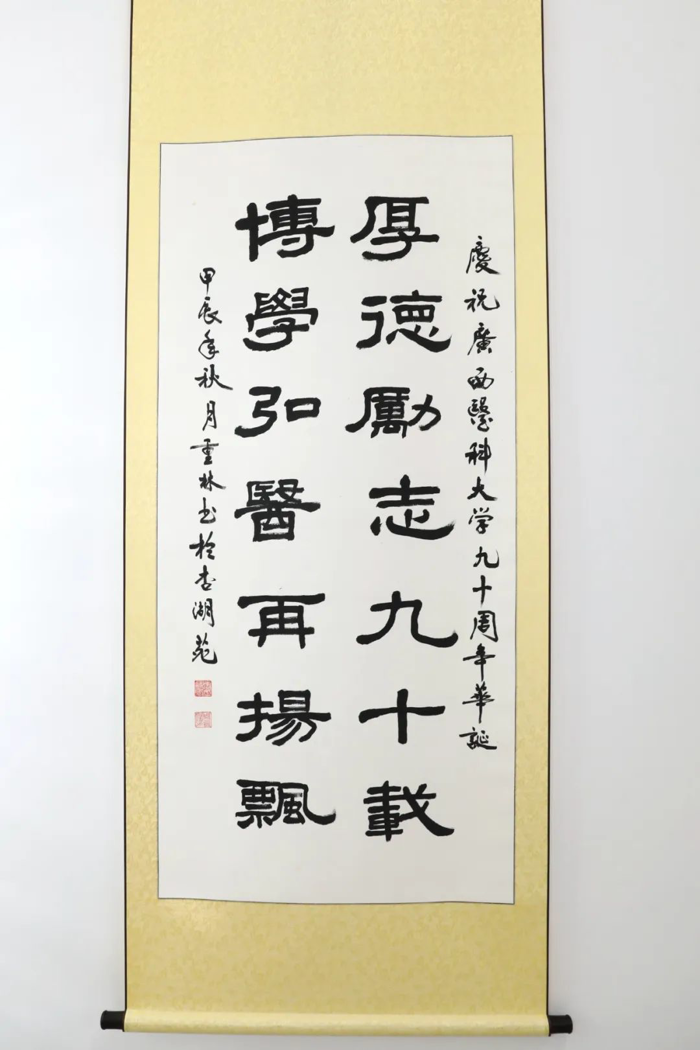 慶祝廣西醫科大学九十周年華誕
厚德勵志九十載
博學弘醫再揚飄
甲辰年秋月重林书於杏湖苑